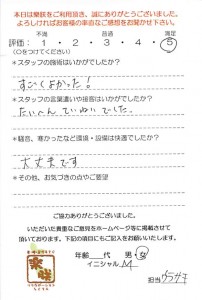 本日は楽癒をご利用頂き、誠にありがとうございました。
よろしければお客様の率直なご感想をお聞かせ下さい。
不満 普通 満足
評価： 1 ・ 2 ・ 3 ・ 4 ・ 5
（○をつけてください）
＊スタッフの施術はいかがでしたか？
すごくよかった！
＊スタッフの言葉遣いや接客はいかがでしたか？
たいへんていねいでした。
＊騒音、寒かったなど環境・設備は快適でしたか？
大丈夫です
＊その他、お気づきの点やご要望
ご協力ありがとうございました。
いただいた貴重なご意見をホームページ等に掲載させて
頂いております。下記の項目にもご記入をお願いいたします。
年齢 代 男・女
イニシャル M
担当